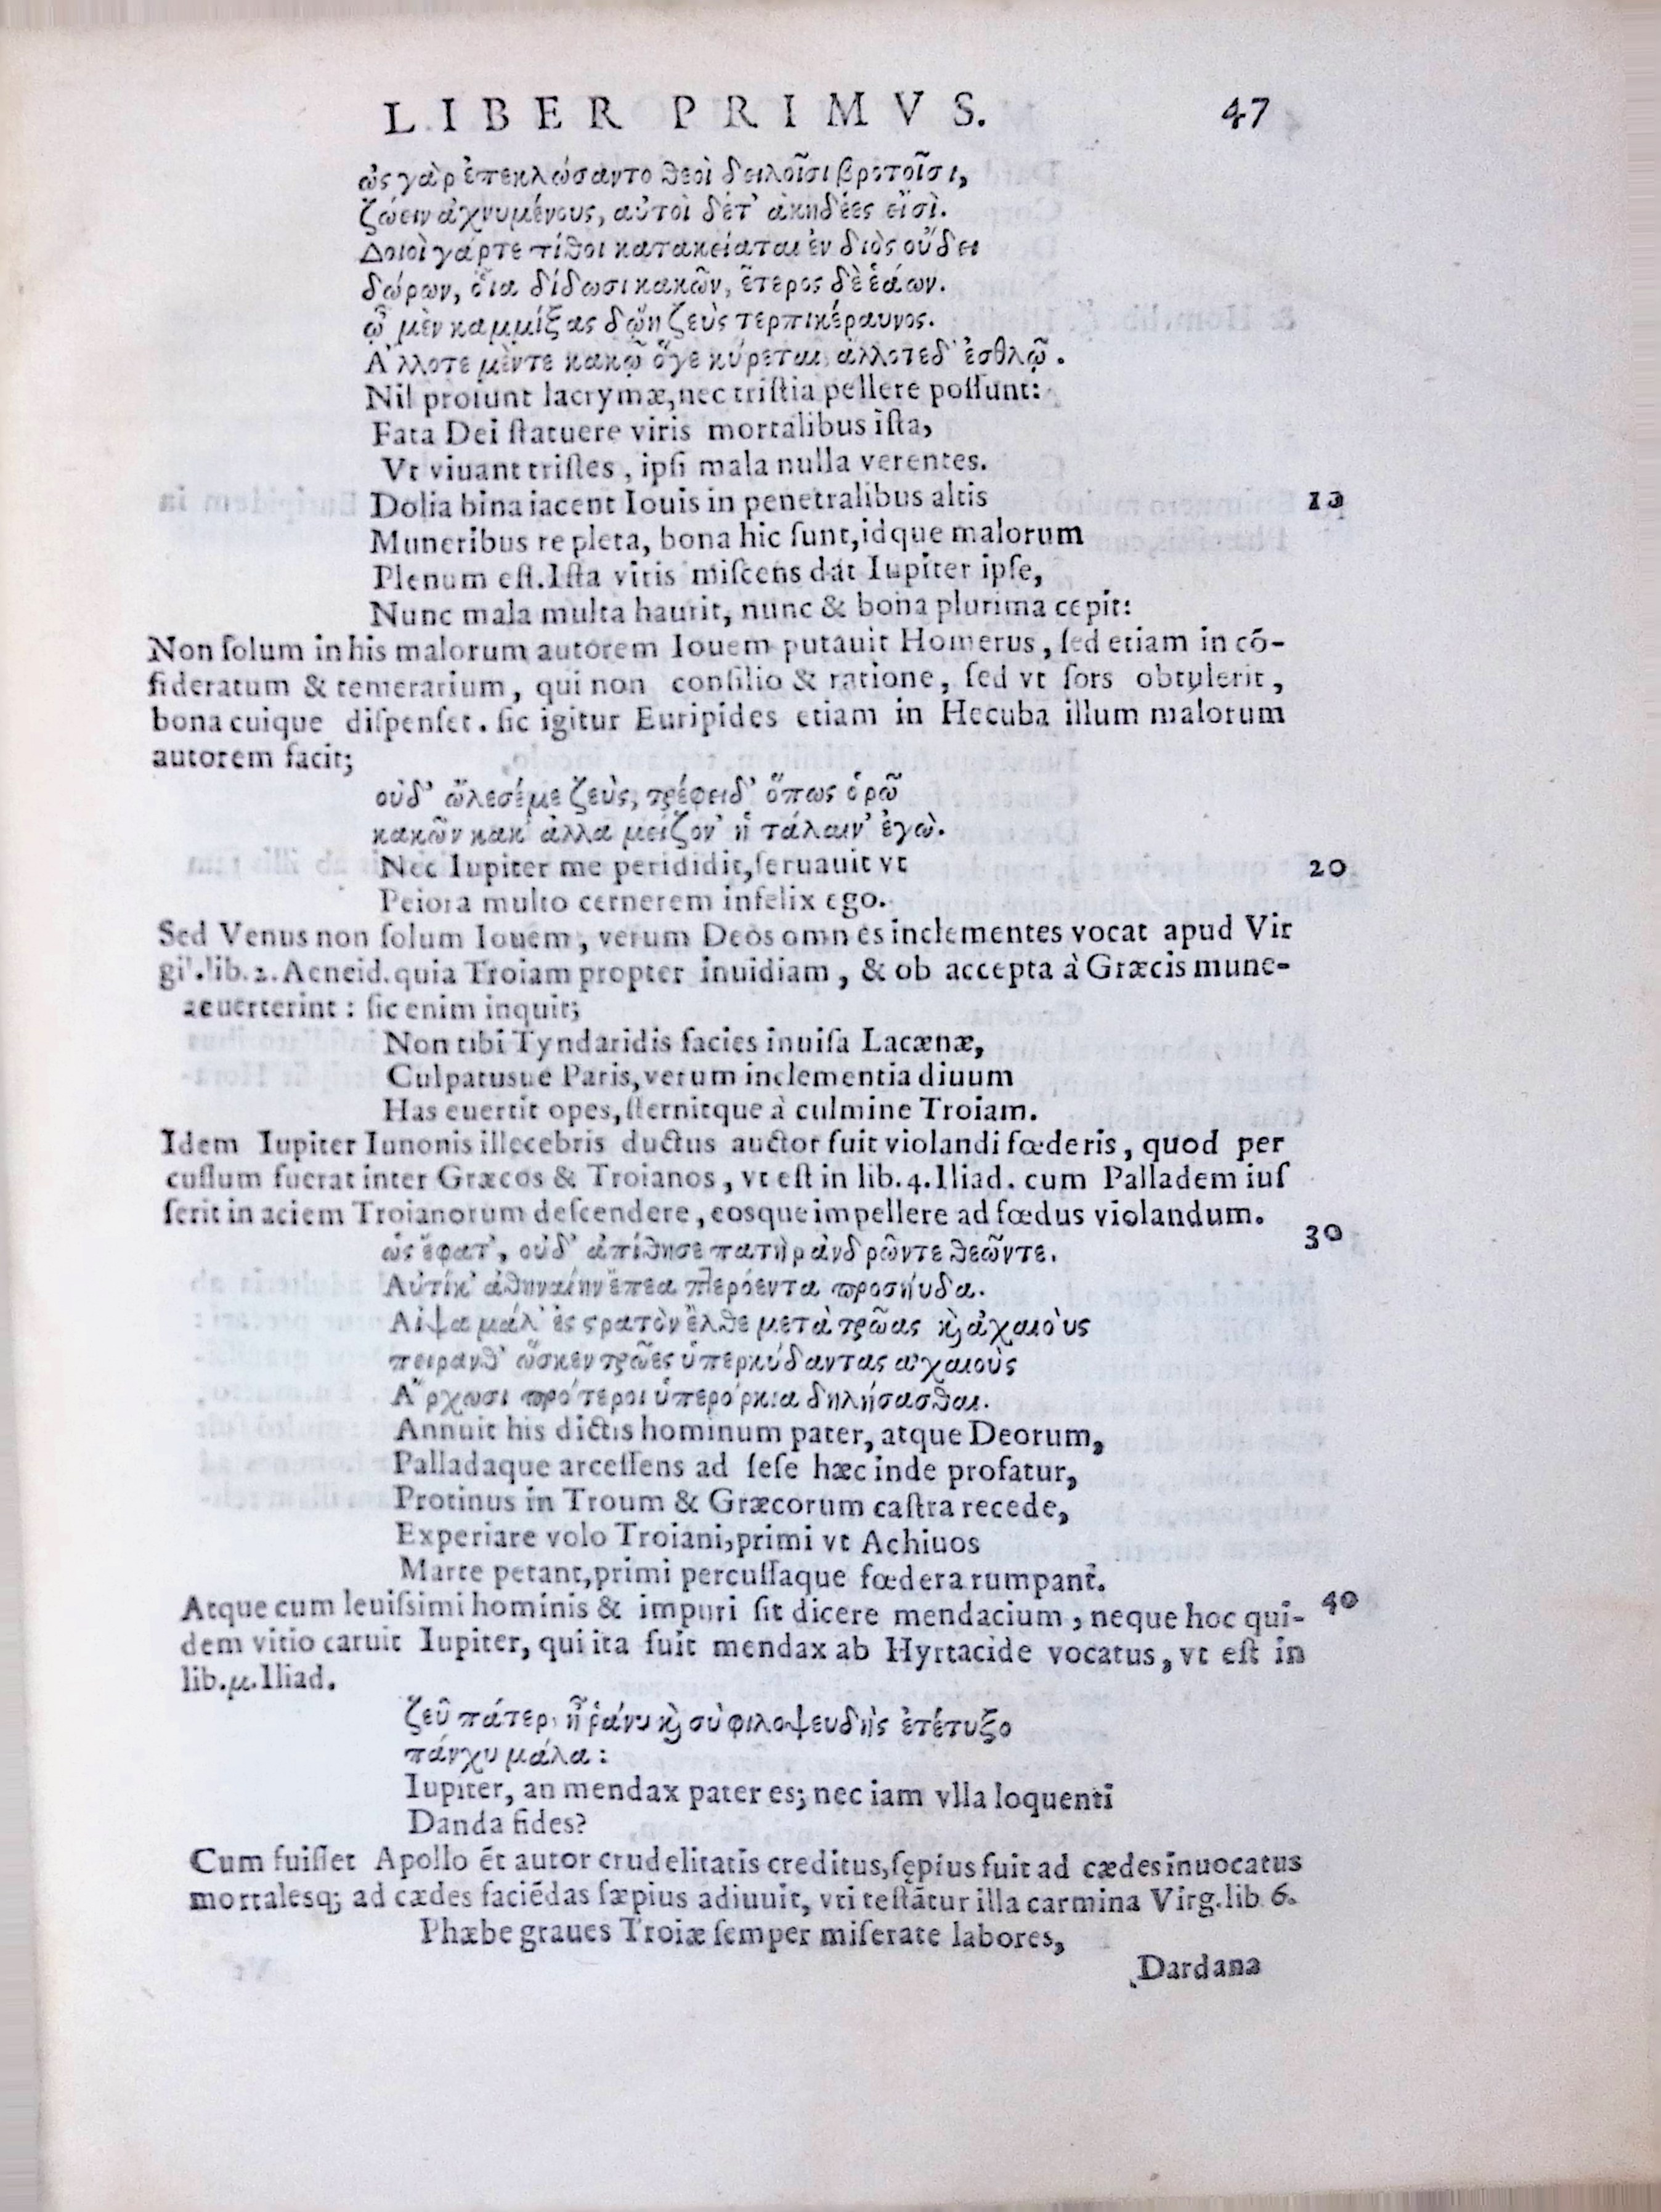 LIBER PRIMVS. 47
ὡς γὰρ ἐπεκλώσαντο θεοὶ δειλοῖσι βροτοῖσι,
ζώειν ἀχνυμένους, αὐτοὶ δέτ' ἀκηδέες εἴσὶ.
Δοιοὶ γάρτε πίθοι κατακείαται ἐν διὸς οὔδει
δώρων, οἷα δίδωσι κακῶν, ἕτερος δὲ ἑάων.
ᾧ μὲν καμμίξας δώῃ ζεὺς τερπικέραυνος.
Α'λλοτε μέντε κακῷ ὅγε κύρεται, ἄλλοτεδ' ἐσθλῷ.
Nil proſunt lacrymæ, nec triſtia pellere poſſunt:
Fata Dei ſtatuere viris mortalibus iſta,
Vt viuant triſtes, ipſi mala nulla verentes.
Dolia bina iacent Iouis in penetralibus altis 10
Muneribus repleta, bona hic ſunt, idque malorum
Plenum eſt. Iſta viris miſcens dat Iupiter ipſe,
Nunc mala multa haurit, nunc & bona plurima cepit:
Non ſolum in his malorum autorem Iouem putauit Homerus, ſed etiam in cõ-
ſideratum & temerarium, qui non conſilio & ratione, ſed vt ſors obtulerit,
bona cuique diſpenſet. ſic igitur Euripides etiam in Hecuba illum malorum
autorem facit;
οὐδ' ὤλεσέμε ζεὺς, τρέφειδ' ὅπως ὁρῶ
κακῶν κακ' ἄλλα μείζον' ἡ τάλαιν' ἐγὼ.
Nec Iupiter me perididit, ſeruauit vt 20
Peiora multo cernerem infelix ego.
Sed Venus non ſolum Iouem, verum Deos omnes inclementes vocat apud Vir
gil. lib. 2. Aeneid. quia Troiam propter inuidiam, & ob accepta à Græcis mune-
a euerterint: ſic enim inquit;
Non tibi Tyndaridis facies inuiſa Lacænæ,
Culpatusue Paris, verum inclementia diuum
Has euertit opes, ſternitque à culmine Troiam.
Idem Iupiter Iunonis illecebris ductus auctor fuit violandi fœderis, quod per
cuſſum fuerat inter Græcos & Troianos, vt eſt in lib. 4. Iliad. cum Palladem iuſ
ſerit in aciem Troianorum deſcendere, eosque impellere ad fœdus violandum.
ὡς ἔφατ', οὐδ' ἀπίθησε πατὴρ ἀνδρῶντε θεῶντε. 30
Αὐτίκ' ἀθηναίην ἔπεα πτερόεντα προσηύδα.
Αἶψα μάλ' ἐς στρατὸν ἔλθε μετὰ τρῶας καὶ ἀχαιοὺς
πειρανθ' ὥσκεν τρῶες ὑπερκύδαντας ἀχαιοὺς
Α῎ρχωσι πρότεροι ὑπερόρκια δηλήσασθαι.
Annuit his dictis hominum pater, atque Deorum,
Palladaque arceſſens ad ſeſe hæc inde profatur,
Protinus in Troum & Græcorum caſtra recede,
Experiare volo Troiani, primi vt Achiuos
Marte petant, primi percuſſaque fœdera rumpant.
Atque cum leuiſsimi hominis & impuri ſit dicere mendacium, neque hoc qui- 40
dem vitio caruit Iupiter, qui ita fuit mendax ab Hyrtacide vocatus, vt eſt in
lib. μ. Iliad.
ζεῦ πάτερ, ἦ ῥάνυ καὶ σὺ φιλοψευδὴς ἐτέτυξο
πάνχυ μάλα:
Iupiter, an mendax pater es; nec iam vlla loquenti
Danda fides?
Cum fuiſſet Apollo ẽt autor crudelitatis creditus, ſępius fuit ad cædes inuocatus
mortalesq; ad cædes faciẽdas ſæpius adiuuit, vti teſtãtur illa carmina Virg. lib. 6.
Phæbe graues Troiæ ſemper miſerate labores,
Dardana